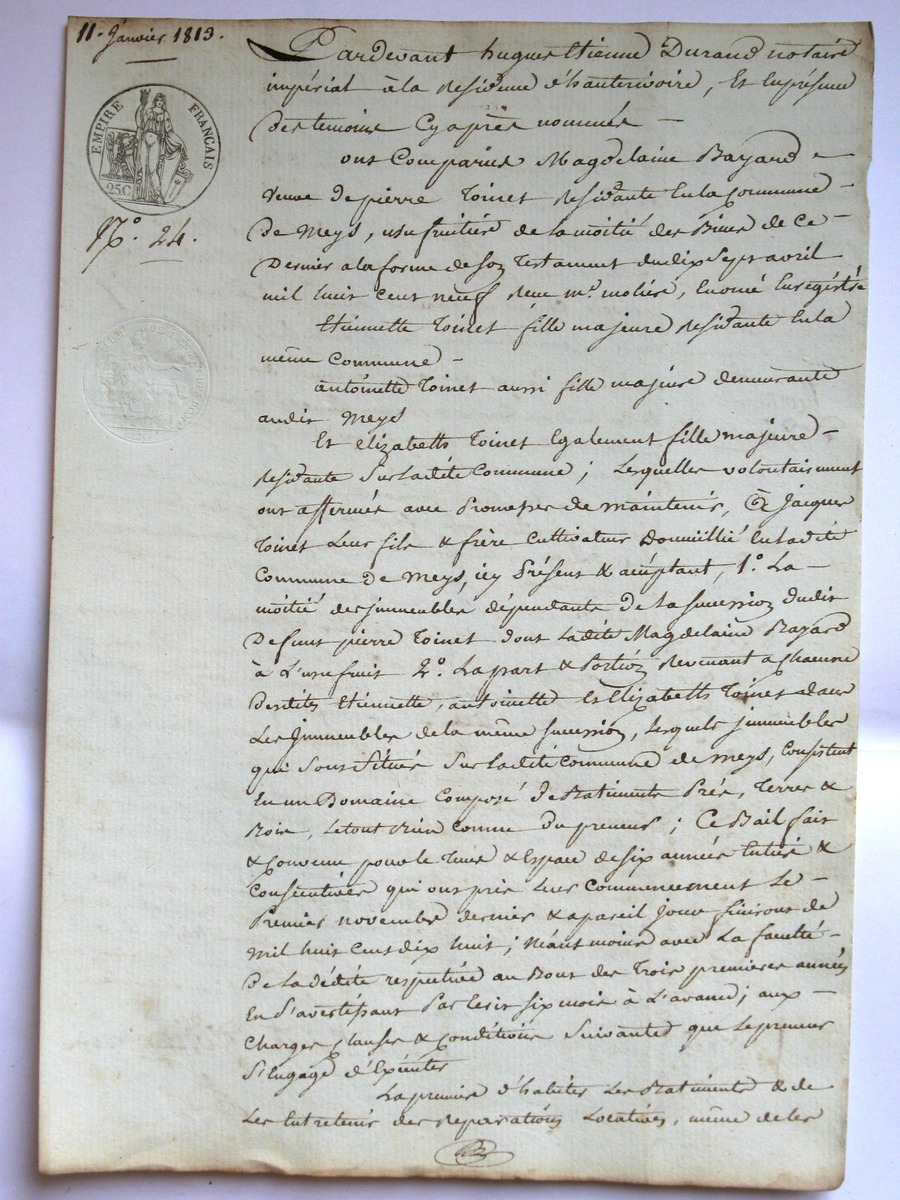 11. Janvier 1813.
EMPIRE FRANÇAIS
25C
N.° 24.
Pardevant hugues Etienne Durand notaire
impérial à la Residence d'hauterivoire, Et En présence
Des temoins Cy après nommés
ont Comparües Magdelaine Bayard
veuve de pierre Toinet Residante En la Commune
De Meys, usufruitière de la moitié des Biens de Ce
Dernier a la forme de son Testament du dix Sept avril
mil huit cent neuf Reçu m.e molière, Enregistré
Etiennette Toinet fille majeure Residante En la
même Commune
antoinette Toinet aussi fille majeure demeurante
audit Meys
Et Elizabeth Toinet Egalement fille majeure
Residante Sur ladite Commune ; Lesquelles volontairement
ont affermés avec Promesses de maintenir, à Jacques
Toinet Leur fils & frère Cultivateur Domicillié En ladite
Commune De Meys, icy Présent & acceptant, 1.° La
moitié des jmmeubles dépendants De la Succession dudit
Defunt pierre Toinet dont Ladite Magdelaine Bayard
à L'usufruit 2.° La part & Portion Revenant a Chacune
Desdites Etiennette, antoinette Et Elizabeth Toinet dans
Les Jmmeubles de la même Succession, Lesquels jmmeubles
qui Sont Situés Sur Ladite Commune de Meys, Consistent
En un Domaine Composé de Batiments Prés, Terres &
Bois, Le tout Bien connu du preneur ; Ce Bail fait
& Convenu pour le Tems & Espace de six années Entières &
Consécutives qui ont pris Leur Commencement Le
Premier novembre dernier & a pareil jour finiront de
mil huit Cent dix huit ; Néant moins avec La faculté
De La dédite respective au Bout des Trois premières années
En S'avertissant Par Ecrit six mois à L'avance ; aux
Charges Clauses & Conditions Suivantes que Le preneur
S'Engage d'Exécuter
La première d'habiter Les Batiments & de
Les Entretenir des Reparations Locatives, même de les